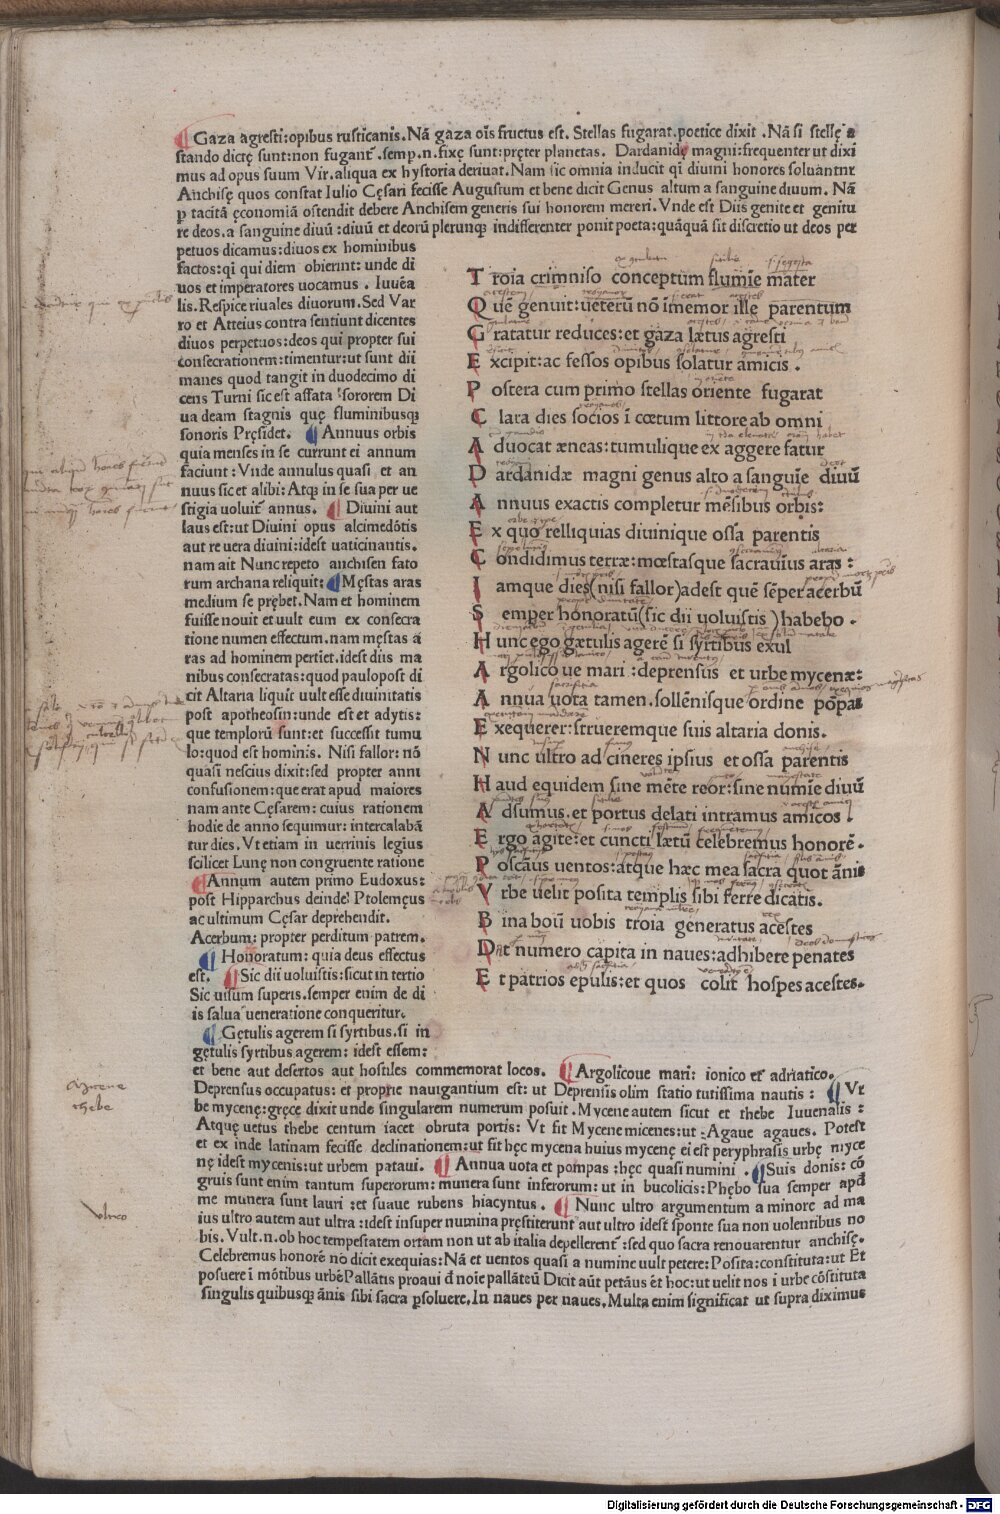 Gaza agresti:opibus rusticanis.Nā gaza oīs fructus est. Stellas fugarat.poetice dixit .Nā si stellę a
stando dictę sunt:non fugant᷑.semp.n.fixę sunt:pręter planetas. Dardanidę magni:frequenter ut dixi
mus ad opus suum Vir.aliqua ex hystoria deriuat.Nam sic omnia inducit qi diuini honores soluantnr
Anchisę quos constat Iulio Cęsari fecisse Augustum et bene dicit Genus altum a sanguine diuum. Nā
ꝑ tacitā ęconomiā ostendit debere Anchisem generis sui honorem mereri.Vnde est Diis genite et genitu
re deos.a sanguine diuū :diuū et deorū plerunqꝫ indifferenter ponit poeta:quāquā sit discretio ut deos per
petuos dicamus:diuos ex hominibus
factos:qi qui diem obierint: unde di
uos et imperatores uocamus . Iuuēa
lis.Respice riuales diuorum.Sed Var
ro et Atteius contra sentiunt dicentes
diuos perpetuos:deos qui propter sui
consecrationem:timentur:ut sunt dii
manes quod tangit in duodecimo di
cens Turni sic est affata sororem Di
ua deam stagnis quę fluminibusqꝫ
sonoris Pręsidet. Annuus orbis
quia menses in se currunt ei annum
faciunt :Vnde annulus quasi et an
nuus sic et alibi: Atqꝫ in se sua per ue
stigia uoluit᷑ annus. Diuini aut
laus est:ut Diuini opus alcimedōtis
aut re uera diuini:idest uaticinantis.
nam ait Nunc repeto anchisen fato
rum archana reliquit: Męstas aras
medium se prębet.Nam et hominem
fuisse nouit et uult eum ex consecra
tione numen effectum.nam męstas a
ras ad hominem pertiet.idest diis ma
nibus consecratas:quod paulopost di
cit Altaria liquit uult esse diuinitatis
post apotheosin:unde est et adytis:
que templorū sunt:et successit tumu
lo:quod est hominis. Nisi fallor: nō
quasi nescius dixit:sed propter anni
confusionem:que erat apud maiores
nam ante Cęsarem: cuius rationem
hodie de anno sequimur: intercalabā
tur dies. Vt etiam in uerrinis legius
scilicet Lunę non congruente ratione
Annum autem primo Eudoxus:
post Hipparchus deinde Ptolemęus
ac ultimum Cęsar deprehendit.
Acerbum: propter perditum patrem.
Honoratum: quia deus effectus
est. Sic dii uoluistis:sicut in tertio
Sic uisum superis.semper enim de di
is salua ueneratione conqueritur.
Gętulis agerem si syrtibus.si in
gętulis syrtibus agerem: idest essem:
T roia crimniso conceptum flumīe mater
Q uē genuit:ueterū nō īmemor ille parentum
G ratatur reduces:et gaza lætus agresti
E xcipit:ac fessos opibus solatur amicis .
P ostera cum primo stellas oriente fugarat
C lara dies socios ī cœtum littore ab omni
A duocat æneas:tumulique ex aggere fatur
D ardanidæ magni genus alto a sanguīe diuū
A nnuus exactis completur mēsibus orbis:
E x quo relliquias diuinique ossa parentis
C ondidimus terræ:mœstasque sacrauīus aras :
I amque dies(nisi fallor)adest quē sēper acerbū
S emper honoratū(sic dii uoluistis )habebo .
H unc ego gætulis agerē si syrtibus exul
A rgolico ue mari :deprensus et urbe mycenæ:
A nnua uota tamen.sollēnisque ordine pōpas
E xequerer:strueremque suis altaria donis.
N unc ultro ad cineres ipsius et ossa parentis
H aud equidem sine mēte reor:sine numīe diuū
A dsumus.et portus delati intramus amicos .
E rgo agite:et cuncti lætū celebremus honorē.
P oscāus uentos:atque hæc mea sacra quot ānis
V rbe uelit posita templis sibi ferre dicatis.
B ina boū uobis troia generatus acestes
D at numero capita in naues:adhibete penates
E t patrios epulis:et quos colit hospes acestes.
et bene aut desertos aut hostiles commemorat locos. Argolicoue mari: ionico et adriatico.
Deprensus occupatus: et proprie nauigantium est: ut Deprensis olim statio tutissima nautis : Vr
be mycenę:gręce dixit unde singularem numerum posuit.Mycene autem sicut et thebe Iuuenalis :
Atqꝫ uetus thebe centum iacet obruta portis: Vt sit Mycene micenes:ut :Agaue agaues. Potest
et ex inde latinam fecisse declinationem:ut sit hęc mycena huius mycenę ei est peryphrasis urbę myce
nę idest mycenis:ut urbem pataui. Annua uota et pompas :hęc quasi numini . Suis donis: cō
gruis sunt enim tantum superorum: munera sunt inferorum: ut in bucolicis:Phębo sua semper apd
me munera sunt lauri :et suaue rubens hiacyntus. Nunc ultro argumentum a minore ad ma
ius ultro autem aut ultra :idest insuper numina pręstiterunt aut ultro idest sponte sua non uolentibus no
bis. Vult.n.ob hoc tempestatem ortam non ut ab italia depellerent᷑ :sed quo sacra renouarentur anchisę.
Celebremus honorē nō dicit exequias:Nā et uentos quasi a numine uult petere: Posita:constituta:ut Et
posuere ī mōtibus urbē Pallātis proaui đ noīe pallāteū Dicit aūt petāus ēt hoc:ut uelit nos ī urbe cōstituta
singulis quibusqꝫ ānis sibi sacra ꝑsoluere.In naues per naues.Multa enim significat ut supra diximus
thebe
Digitalisierung gefördert durch die Deutsche Forschungsgemeinschaft - DFG